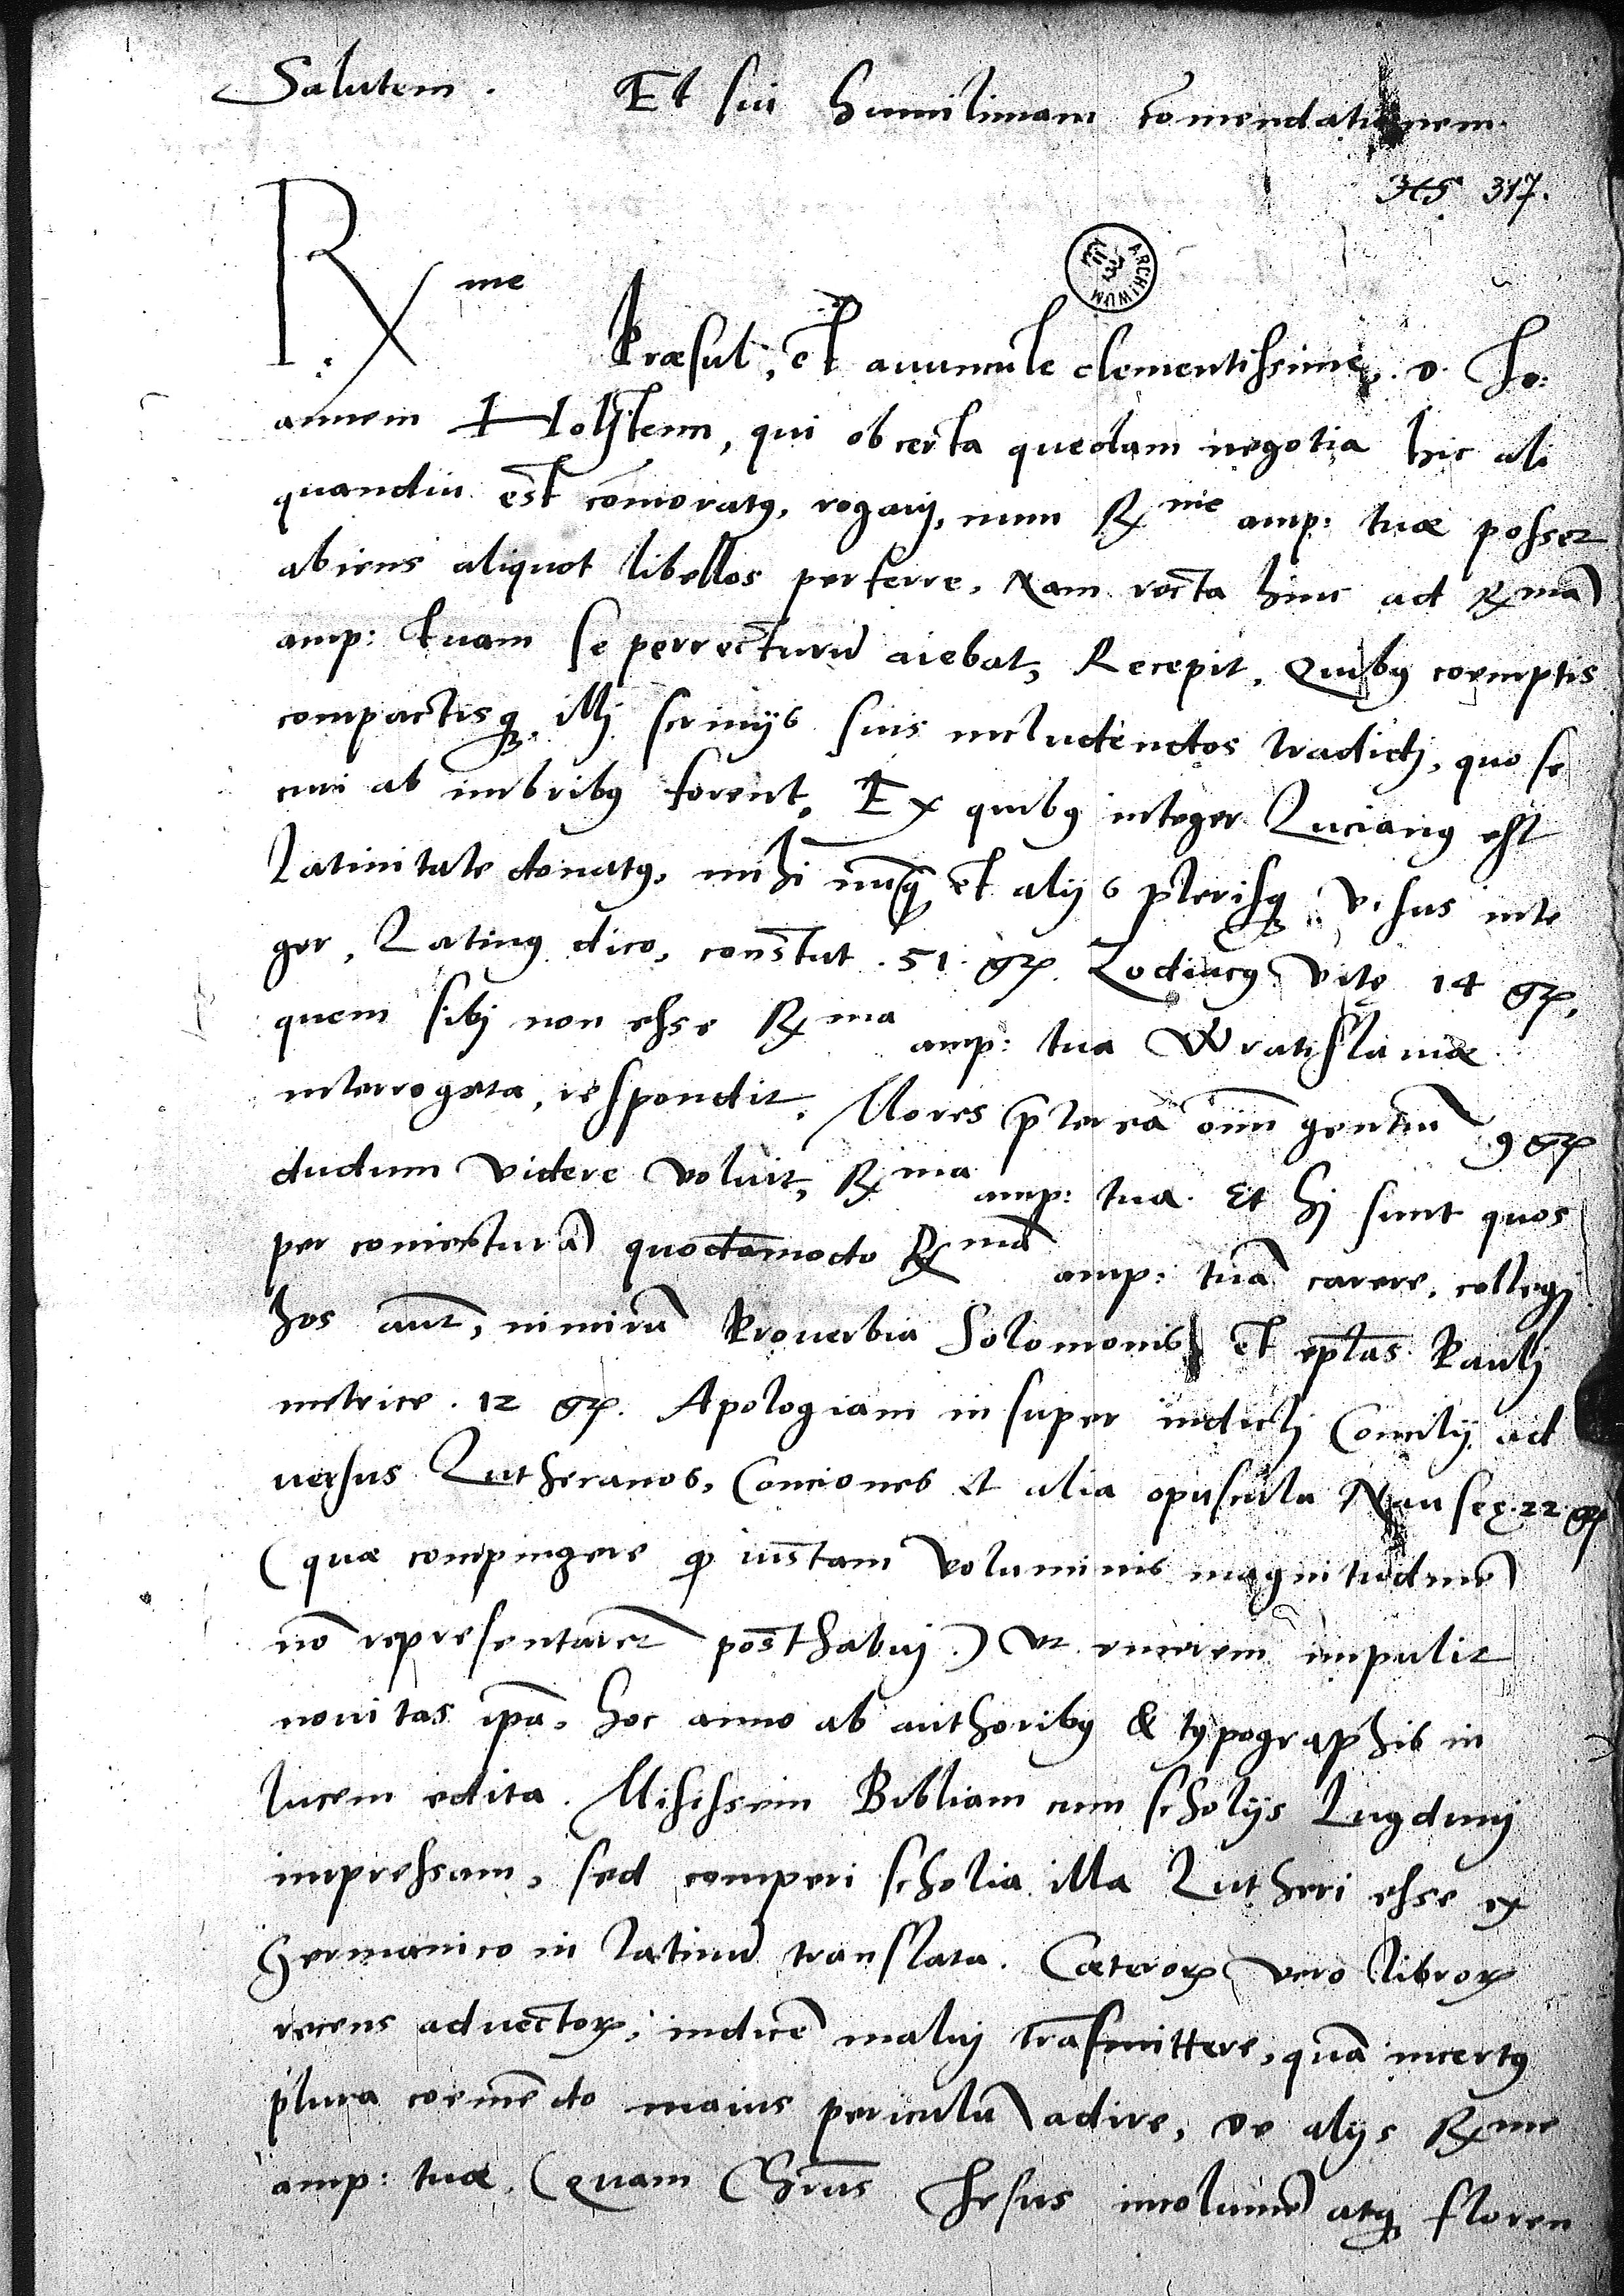 Salutem. Et sui humilimam comendationem.
HS 317.
ARCHIWUM
Rme
Præsul, et auuncule clementissime, D. Jo:
annem Holsten, qui ob certa quedam negotia hic ali
quandiu est comoratus, rogaui, num Rme amp: tuæ posset
abiens aliquot libellos perferre, Nam recta hinc ad Rmā
amp: tuam se perrecturū aiebat, Recepit, Quibus coemptis
compactisq illi scriniis suis includendos tradidi, quo se
curi ab imbribus forent. Ex quibus integer Lucianus est
Latinitate donatus, mihi nunq et aliis plerisq visus inte
ger, Latinus dico, constat .51. gr. Zodiacus vitę 14 gr,
quem sibi non esse Rma amp: tua Wratislauiæ
interrogata, respondit. Mores pterea oīm gentiū 9 gr
dudum videre voluit, Rma amp: tua. Et hi sunt quos
per coniecturā quodammodo Rmā amp: tuā carere, collegi
hos aut, nimirū Prouerbia Solomonis et eplas Pauli
metrice. 12 gr. Apologiam insuper indicti Concilij ad
uersus Lutheranos, Conciones et alia opuscula Nauseę. 22 gr
(quæ compingere q iustam voluminis magnitudinē
nō representaret posthabui.) Vt emerem impulit
nouitas ipā, hoc anno ab authoribus & typographis in
lucem edita. Misissem Bibliam cum scholijs Lugduni
impressam, sed comperi scholia illa Lutheri esse ex
Germanico in latinū translata. Cæteror vero libror
recens aduector, indicē malui trāsmittere, quā incertus
plura coemēdo maius periculū adire, de alijs Rme
amp: tuæ, (Quam Chrūs Jhesus incolumē atq floren